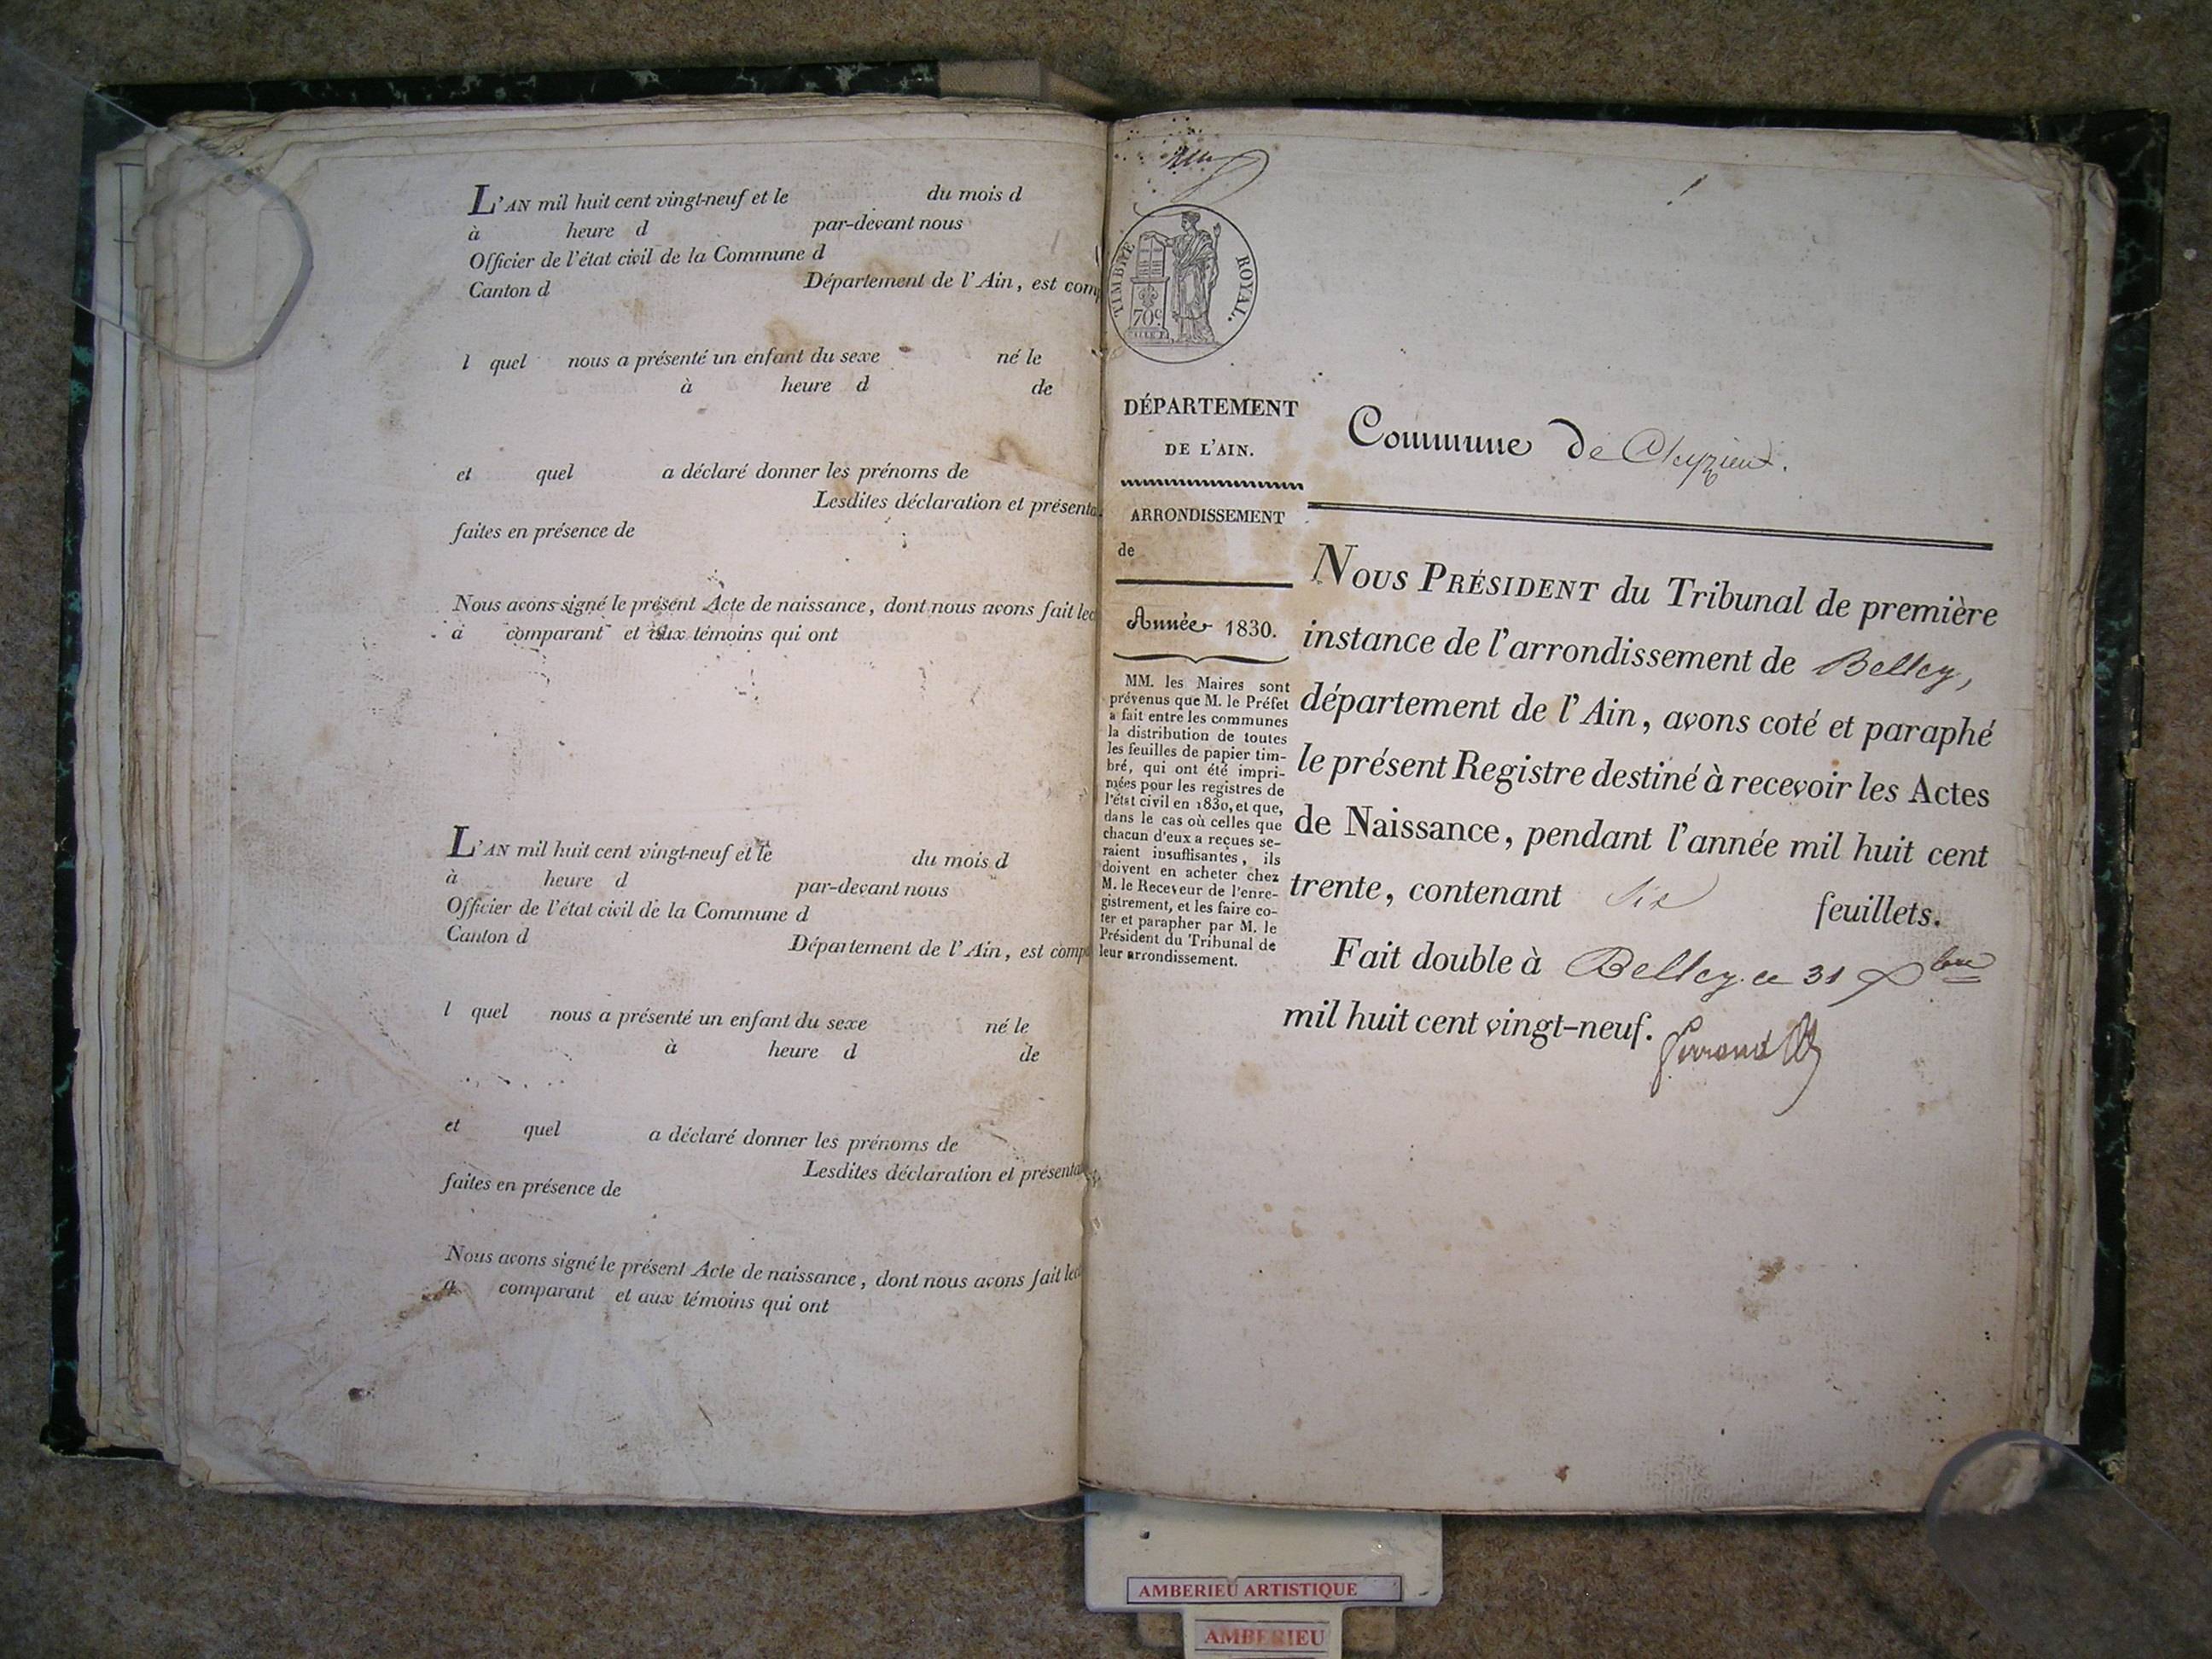 L'AN mil huit cent vingt-neuf et le du mois d
à heure d par-devant nous
Officier de l'état civil de la Commune d
Canton d Département de l'Ain, est comp
l quel nous a présenté un enfant du sexe né le
à heure d de
et quel a déclaré donner les prénoms de
Lesdites déclaration et présenta
faites en présence de
Nous avons signé le présent Acte de naissance, dont nous avons fait lec
a comparant et aux témoins qui ont
L'AN mil huit cent vingt-neuf et le du mois d
à heure d par-devant nous
Officier de l'état civil de la Commune d
Canton d Département de l'Ain, est comp
l quel nous a présenté un enfant du sexe né le
à heure d de
et quel a déclaré donner les prénoms de
Lesdites déclaration et présenta
faites en présence de
Nous avons signé le présent Acte de naissance, dont nous avons fait lec
a comparant et aux témoins qui ont
TIMBRE ROYAL.
70c
DÉPARTEMENT
DE L'AIN.
ARRONDISSEMENT
de
Année 1830.
MM. les Maires sont
prévenus que M. le Préfet
a fait entre les communes
la distribution de toutes
les feuilles de papier tim-
bré, qui ont été impri-
mées pour les registres de
l'état civil en 1830, et que,
dans le cas où celles que
chacun d'eux a reçues se-
raient insuffisantes, ils
doivent en acheter chez
M. le Receveur de l'enre-
gistrement, et les faire co-
ter et parapher par M. le
Président du Tribunal de
leur arrondissement.
Commune de Cleyzieu.
NOUS PRÉSIDENT du Tribunal de première
instance de l'arrondissement de Belley,
département de l'Ain, avons coté et paraphé
le présent Registre destiné à recevoir les Actes
de Naissance, pendant l'année mil huit cent
trente, contenant Six feuillets.
Fait double à Belley ce 31 Xbre
mil huit cent vingt-neuf.
AMBERIEU ARTISTIQUE
AMBERIEU